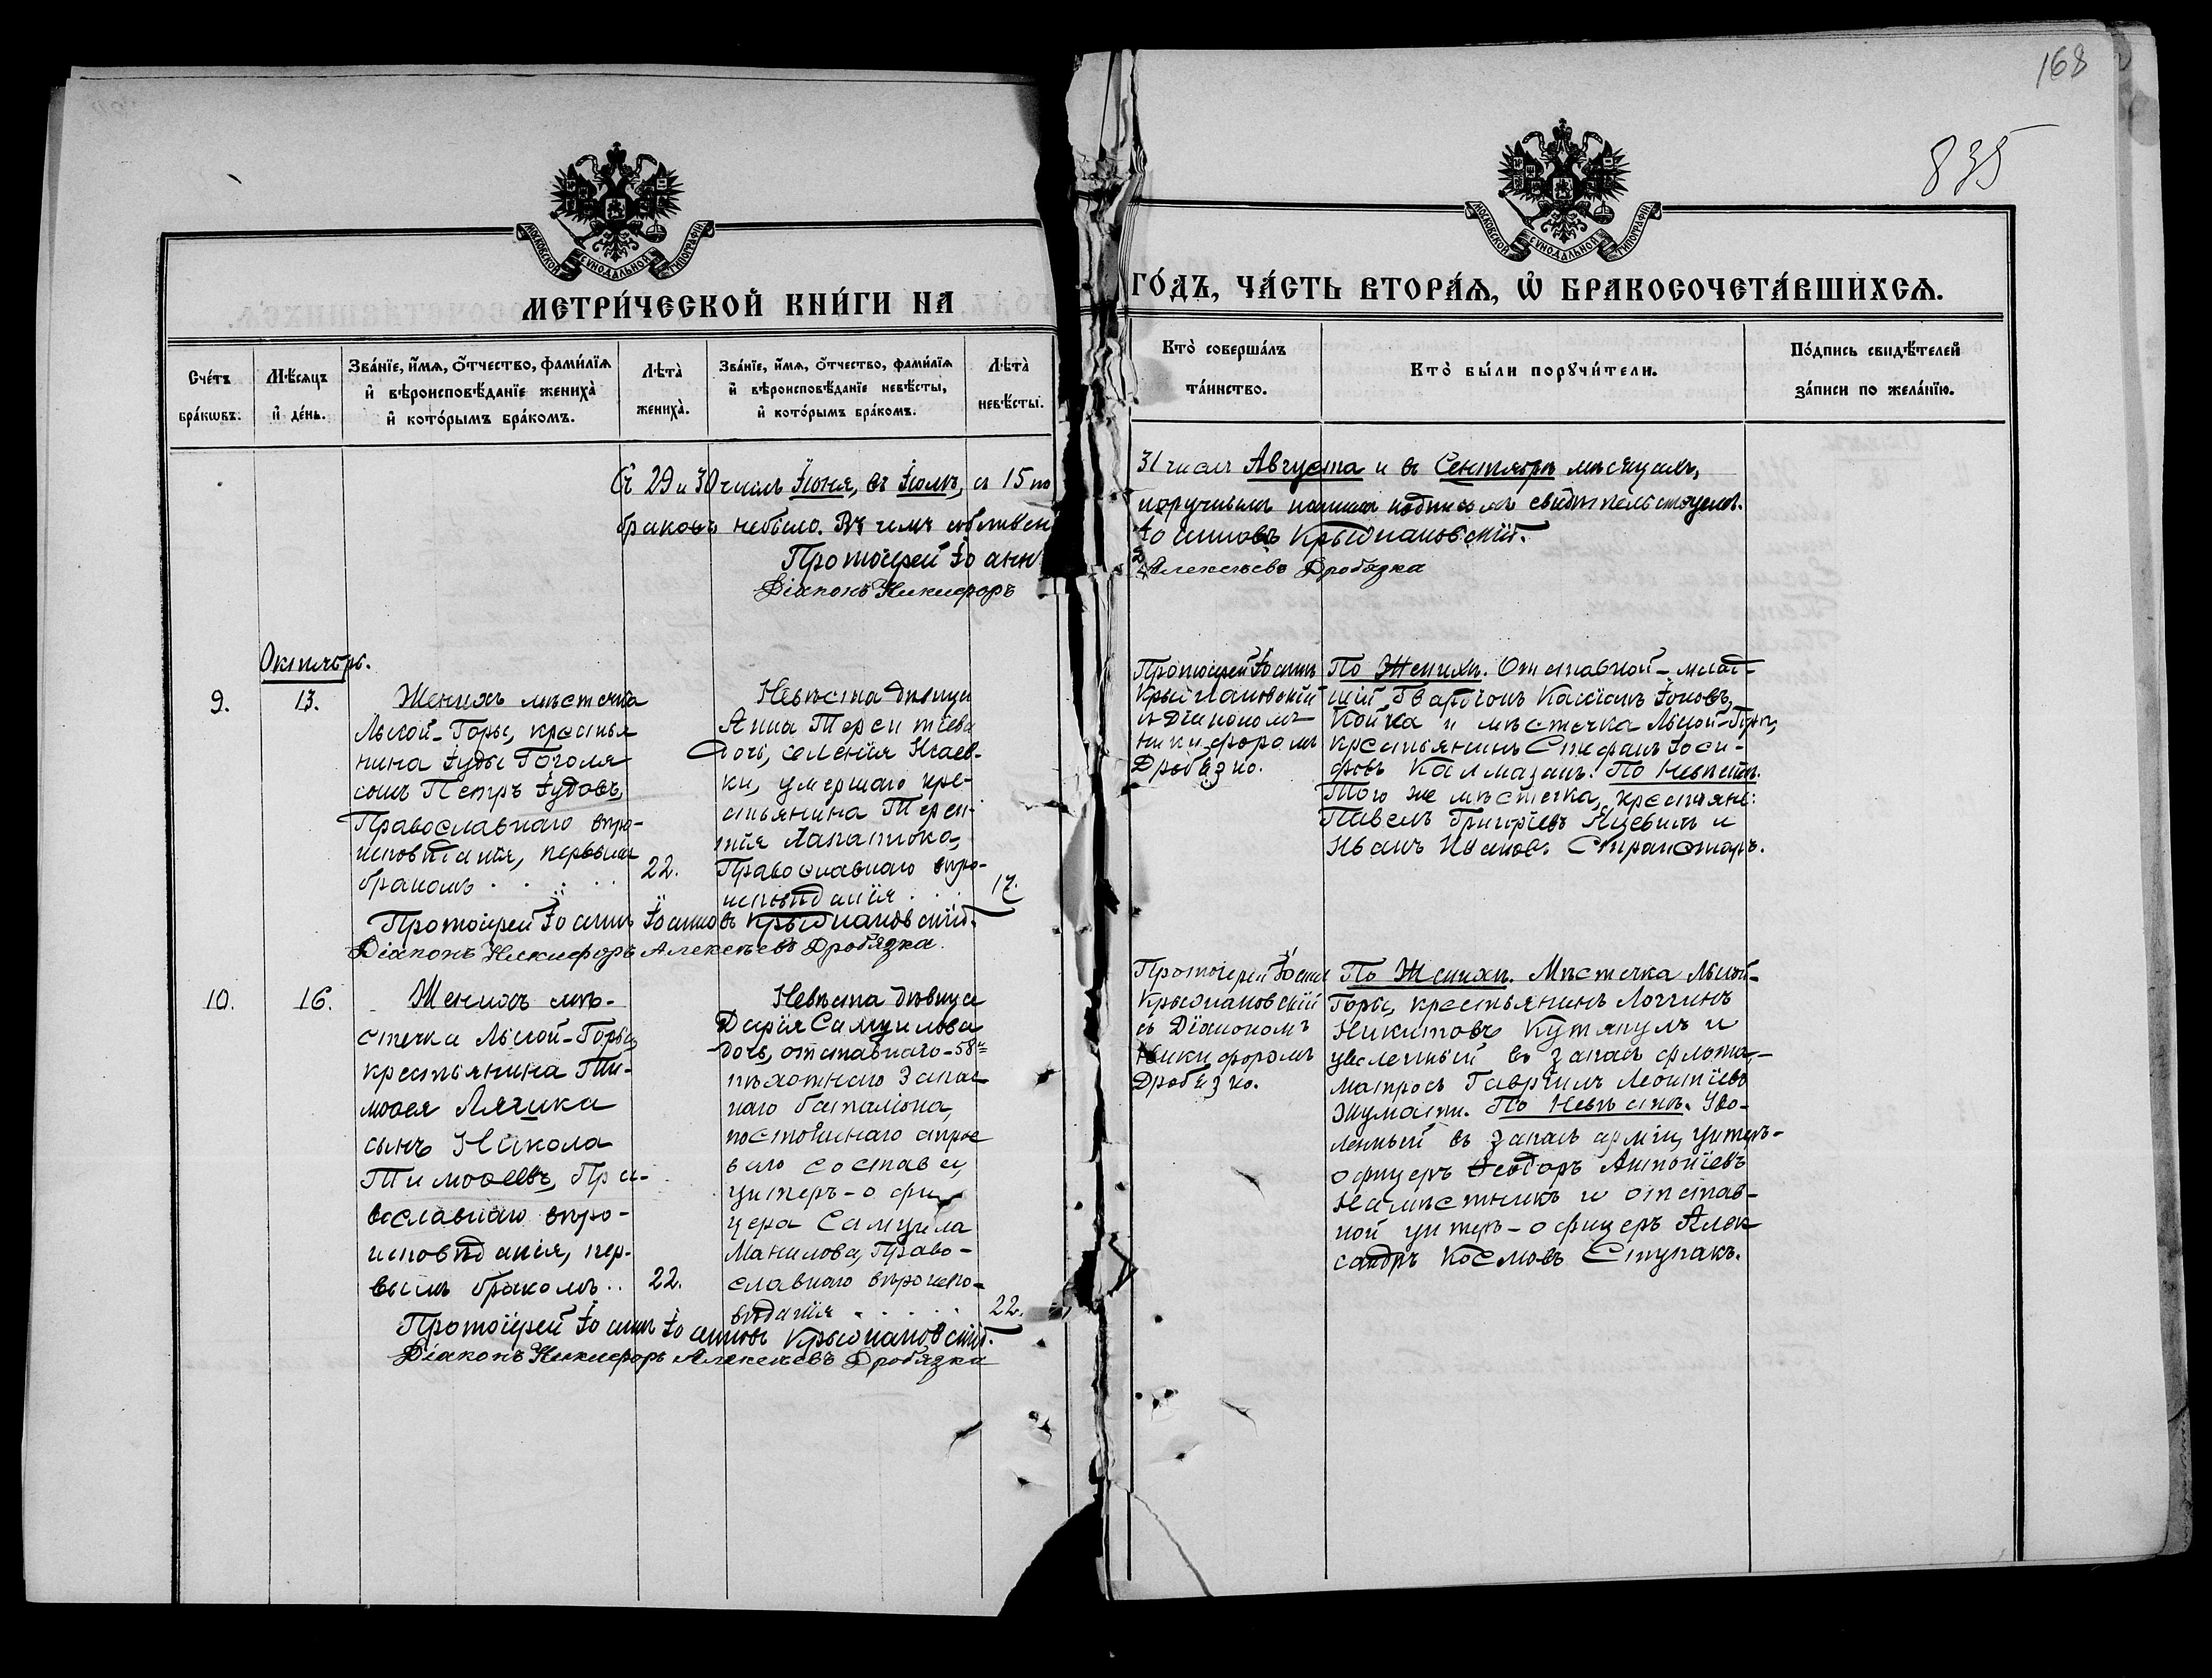 168
835
МОСКОВСКОЙ СѴНОДАЛЬНОЙ ТИПОГРАФІИ
МОСКОВСКОЙ СѴНОДАЛЬНОЙ ТИПОГРАФІИ
МЕТРИ́ЧЕСКОЙ КНИ́ГИ НА
ГО́ДЪ, ЧА́СТЬ ВТОРА́Ѧ, Ѽ БРАКОСОЧЕТА́ВШИХСѦ.
Сче́тъ бра́кѡвъ.
Мѣ́сяцъ и҆ де́нь.
Зва́нїе, и҆́мѧ, ѻ҆́тчество, фами́лїѧ
и҆ вѣроисповѣ́данїе жениха̀
и҆ кото́рымъ бра́комъ.
Лѣта̀ жениха̀.
Зва́нїе, и҆́мѧ, ѻ҆́тчество, фами́лїѧ
и҆ вѣроисповѣ́данїе невѣ́сты,
и҆ кото́рымъ бра́комъ.
Лѣта̀ невѣ́сты.
Кто̀ соверша́лъ
та́инство.
Кто̀ бы́ли порꙋчи́тели.
По́дпись свидѣ́телей
за́писи по жела́нїю.
Съ 29 и 30 чиселъ Іюня, въ Іюлѣ, съ 15 по
31 число Августа и въ Сентябрѣ мѣсяцахъ,
браковъ небыло. Въ чемъ собствен
норучнымъ нашимъ подписомъ свидѣтельствуемъ.
Протоіерей Іоанн
Іоанновъ Крыжановскій.
Діаконъ Никифоръ
Алексѣевъ Дробязка
Октябрь.
9.
13.
Женихъ мѣстечка
Лысой-Горы, крестья
нина Іуды Гоголя
сынъ Петръ Іудовъ,
Православнаго вѣро-
исповѣданія, первымъ
бракомъ . . . .
22.
Невѣста дѣвица
Анна Терентіева
дочь, селенія Исаев-
ки, умершаго кре-
стьянина Терен-
тія Лапатюка,
Православнаго вѣро-
исповѣданія . . .
17.
Протоіерей Іоаннъ
Крыжановскій
съ Діакономъ
Никифоромъ
Дробязко.
По Женихѣ. Отставной-млад-
шій Гвардіонъ Кассіанъ Іоновъ
Койка и мѣстечка Лысой-Горы,
крестьянинъ Стефанъ Іоси-
фовъ Калмазанъ. По Невѣстѣ.
Того же мѣстечка, крестьяне:
Павелъ Григоріевъ Яцевилъ и
Иванъ Ивановъ Страмотаръ.
Протоіерей Іоаннъ Іоанновъ Крыжановскій.
Діаконъ Никифоръ Алексѣевъ Дробязка.
10.
16.
Женихъ мѣ-
стечка Лысой-Горы,
крестьянина Ти-
моѳея Лячика
сынъ Никола
Тимоѳеевъ, Пра-
вославнаго вѣро-
исповѣданія, пер-
вымъ бракомъ . .
22.
Невѣста дѣвица
Дарія Самуилова
дочь, отставнаго-58го
пѣхотнаго Запас
наго баталіона,
постояннаго
состава,
унтеръ-офи
цера Самуила
Манилова, Право-
славнаго вѣроиспо-
вѣданія . . . . .
22.
Протоіерей Іоаннъ
Крыжановскій
съ Діакономъ
Никифоромъ
Дробязко.
По Женихѣ. Мѣстечка Лысой-
Горы, крестьянинъ Логгинъ
Никитовъ Кутяпулъ и
уволенный въ запасъ флота,-
матросъ Гавріилъ Леонтіевъ
Жумати. По Невѣстѣ. Уво-
ленный въ запасъ арміи, унтеръ-
офицеръ Ѳеодоръ Антоніевъ
Намѣстникъ и отстав-
ной унтеръ-офицеръ Алек
сандръ Космовъ Ступакъ.
Протоіерей Іоаннъ Іоанновъ Крыжановскій.
Діаконъ Никифоръ Алексѣевъ Дробязка